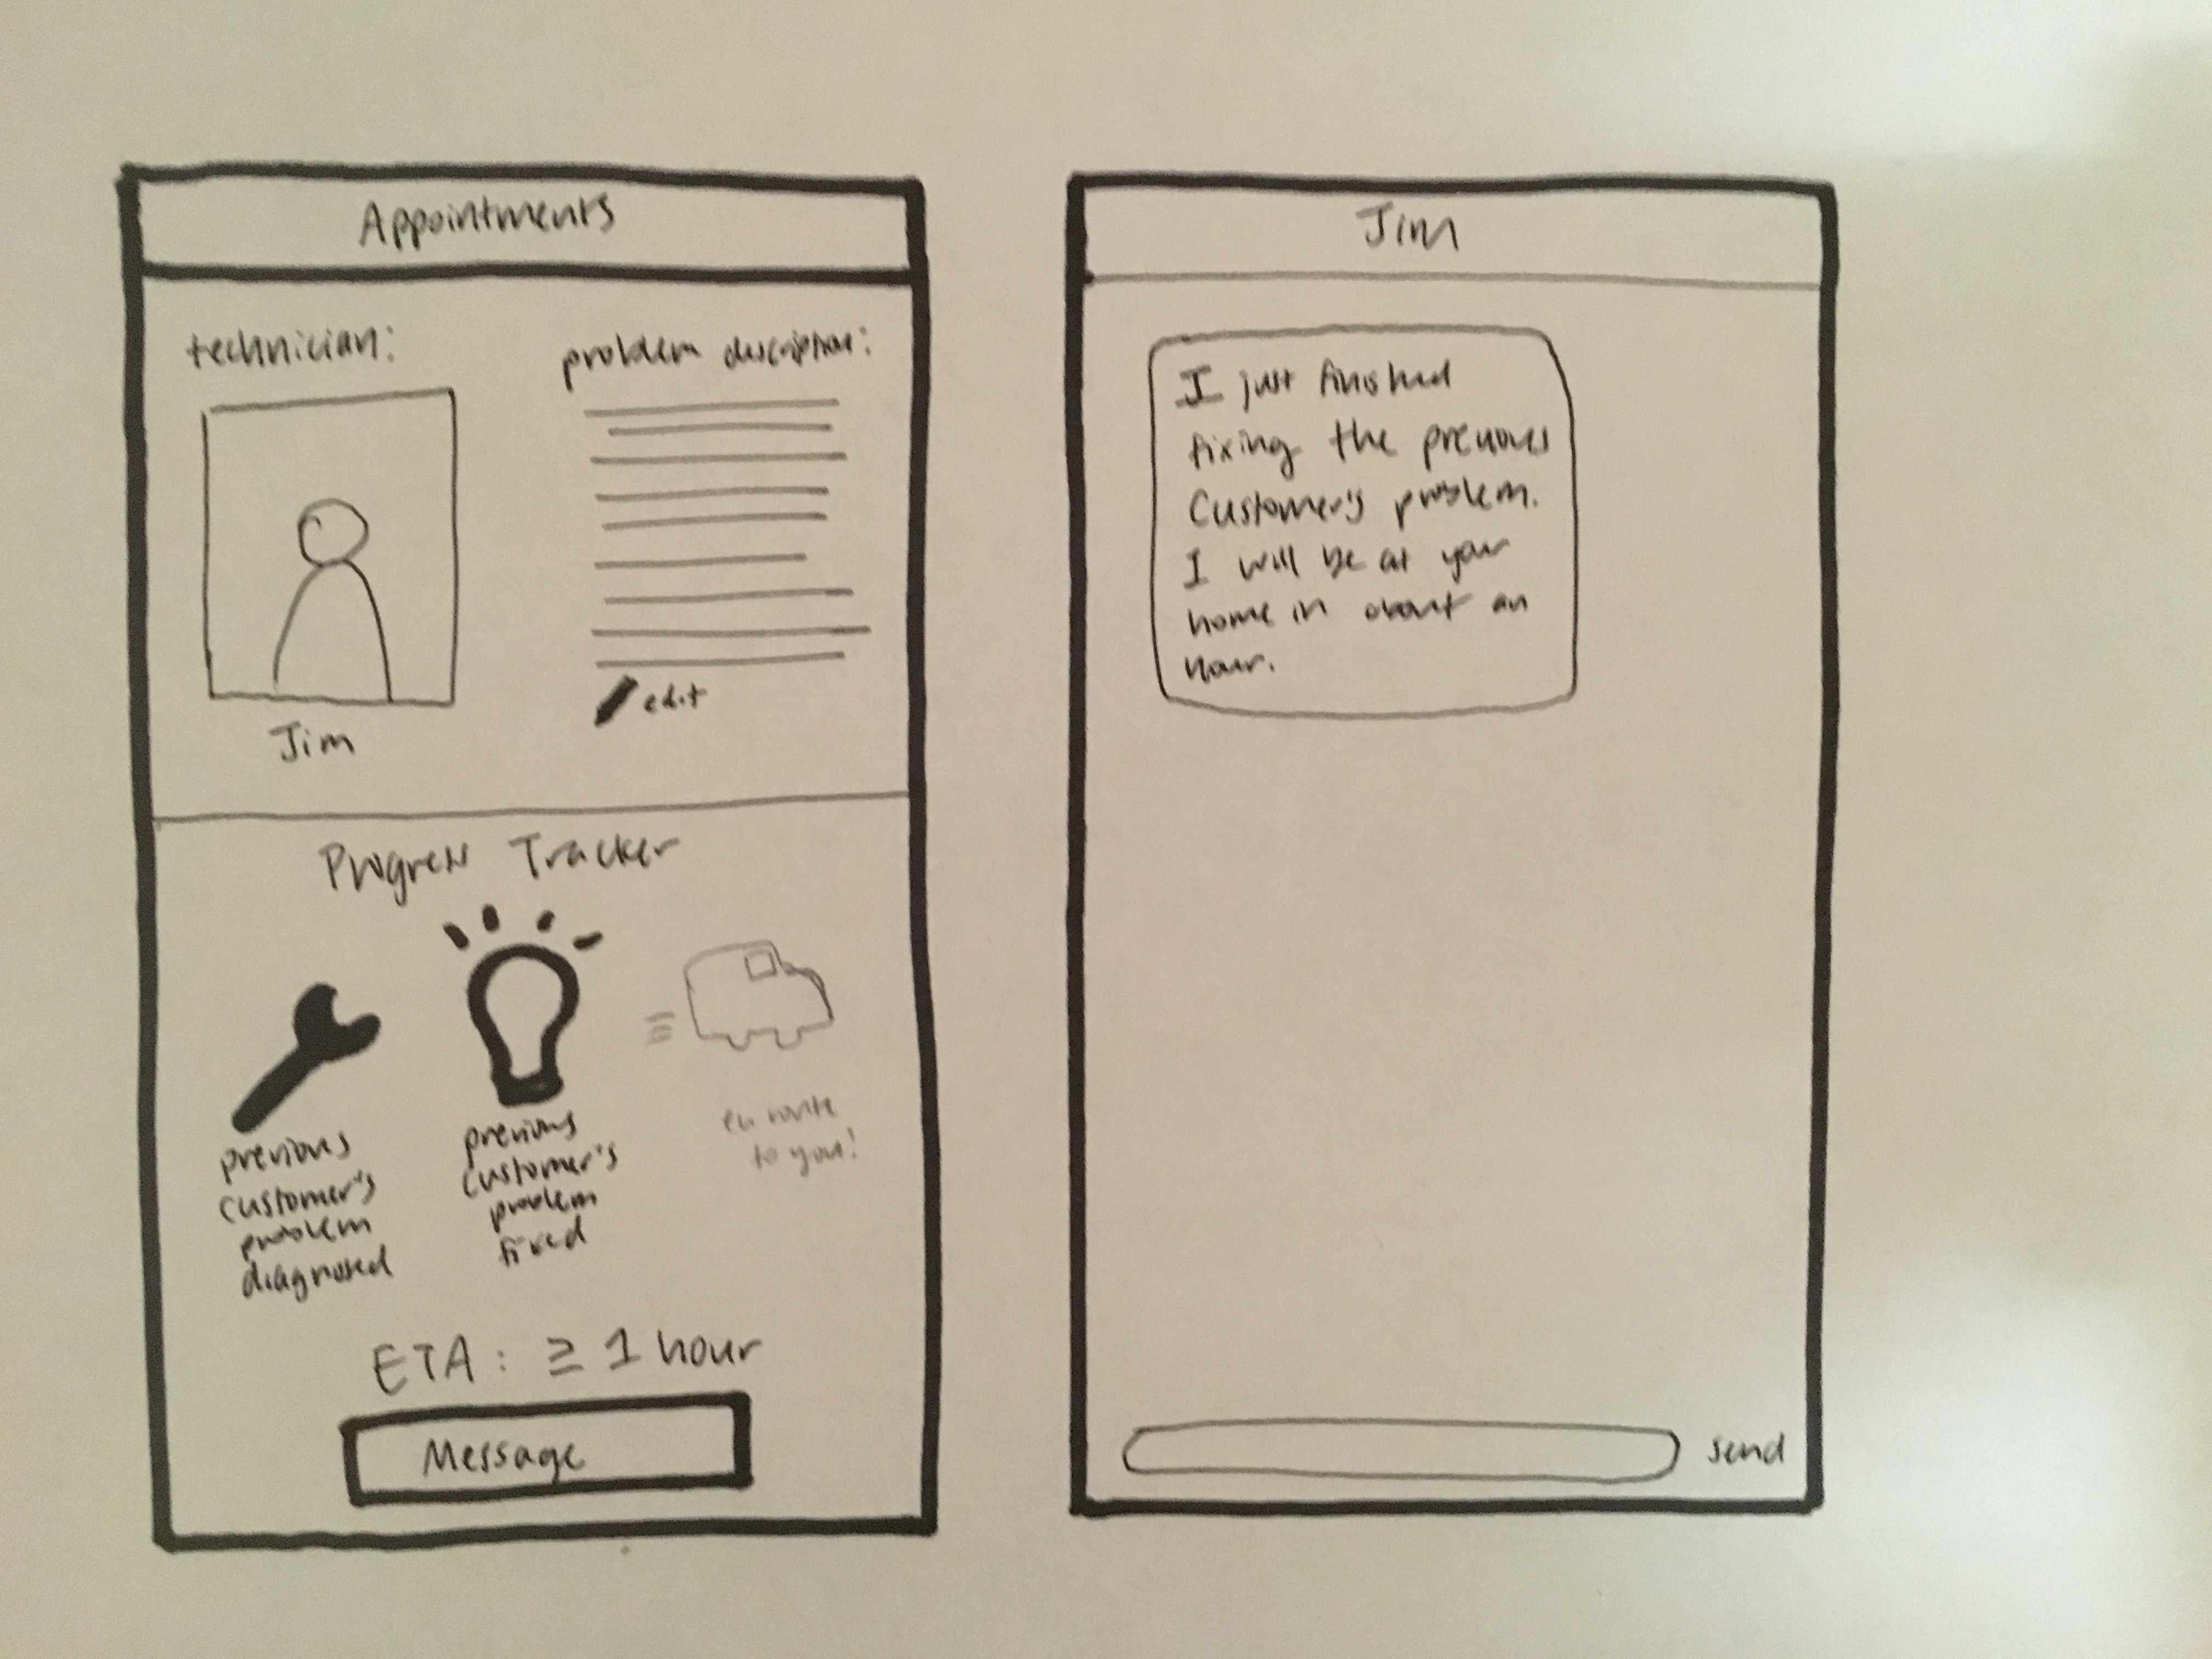 Appointments
technician:
problem description:
edit
Jim
Progress Tracker
previous
customer's
problem
diagnosed
previous
customer's
problem
fixed
en route
to you!
ETA: ≥ 1 hour
Message
Jim
I just finished
fixing the previous
Customer's problem.
I will be at your
home in about an
hour.
send